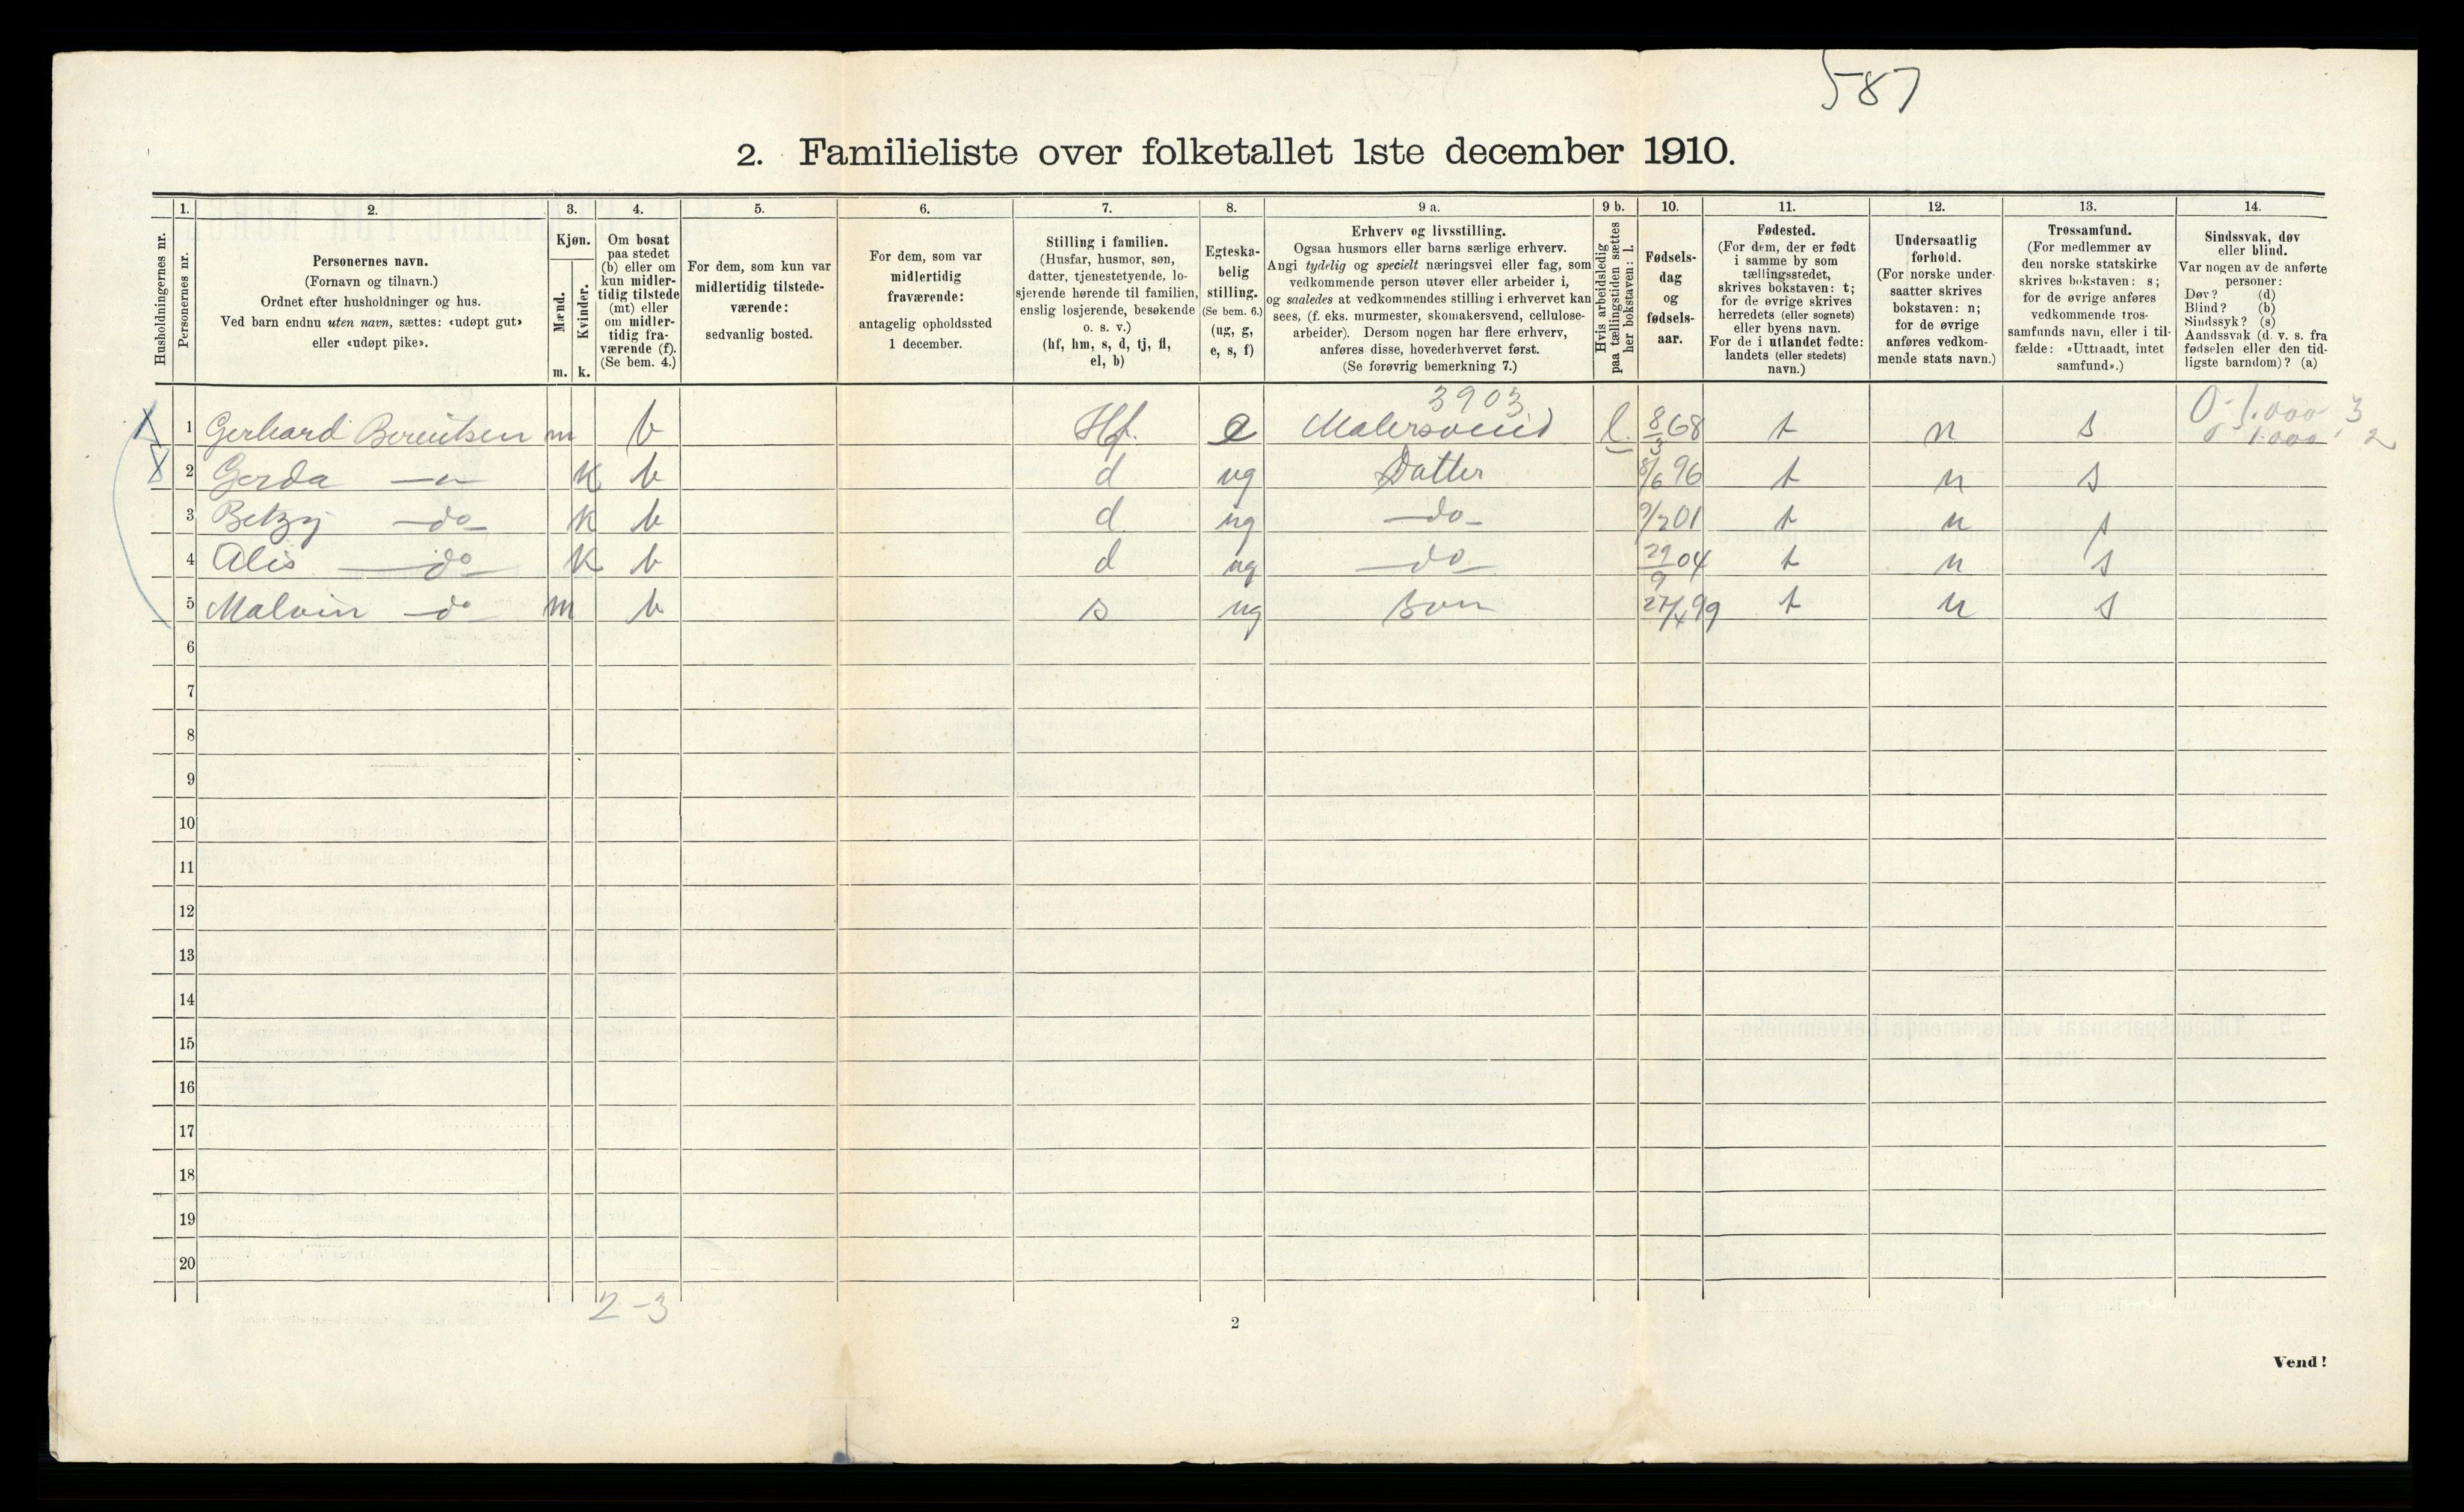 587
2. Familieliste over folketallet 1ste december 1910.
1. 2. 3. 4. 5. 6. 7. 8. 9 a. 9 b. 10. 11. 12. 13. 14.
Husholdningernes nr.
Personernes nr.
Personernes navn.
(Fornavn og tilnavn.)
Ordnet efter husholdninger og hus.
Ved barn endnu uten navn, sættes: «udøpt gut»
eller «udøpt pike».
Kjøn.
Mænd.
Kvinder.
m. k.
Om bosat
paa stedet
(b) eller om
kun midler-
tidig tilstede
(mt) eller
om midler-
tidig fra-
værende (f).
(Se bem. 4.)
For dem, som kun var
midlertidig tilstede-
værende:
sedvanlig bosted.
For dem, som var
midlertidig
fraværende:
antagelig opholdssted
1 december.
Stilling i familien.
(Husfar, husmor, søn,
datter, tjenestetyende, lo-
sjerende hørende til familien,
enslig losjerende, besøkende
o. s. v.)
(hf, hm, s, d, tj, fl,
el, b)
Egteska-
belig
stilling.
(Se bem. 6.)
(ug, g,
e, s, f)
Erhverv og livsstilling.
Ogsaa husmors eller barns særlige erhverv.
Angi tydelig og specielt næringsvei eller fag, som
vedkommende person utøver eller arbeider i,
og saaledes at vedkommendes stilling i erhvervet kan
sees, (f. eks. murmester, skomakersvend, cellulose-
arbeider). Dersom nogen har flere erhverv,
anføres disse, hovederhvervet først.
(Se forøvrig bemerkning 7.)
Hvis arbeidsledig
paa tællingstiden sættes
her bokstaven: l.
Fødsels-
dag
og
fødsels-
aar.
Fødested.
(For dem, der er født
i samme by som
tællingsstedet,
skrives bokstaven: t;
for de øvrige skrives
herredets (eller sognets)
eller byens navn.
For de i utlandet fødte:
landets (eller stedets)
navn.)
Undersaatlig
forhold.
(For norske under-
saatter skrives
bokstaven: n;
for de øvrige
anføres vedkom-
mende stats navn.)
Trossamfund.
(For medlemmer av
den norske statskirke
skrives bokstaven: s;
for de øvrige anføres
vedkommende tros-
samfunds navn, eller i til-
fælde: «Uttraadt, intet
samfund».)
Sindssvak, døv
eller blind.
Var nogen av de anførte
personer:
Døv? (d)
Blind? (b)
Sindssyk? (s)
Aandssvak (d. v. s. fra
fødselen eller den tid-
ligste barndom)? (a)
3903
1 Gerhard Berentsen m b Hf. e Malersvend l. 8/3 68 t n s 0-1.000-3
0 1.000 - 2
2 Gerda —„— k b d ug Datter 8/6 96 t n s
3 Betzy —do— k b d ug —do— 9/2 01 t n s
4 Alis —do— k b d ug —do— 29/9 04 t n s
5 Malvin —do— m b s ug Søn 27/4 99 t n s
6
7
8
9
10
11
12
13
14
15
16
17
18
19
20
2-3
2
Vend!